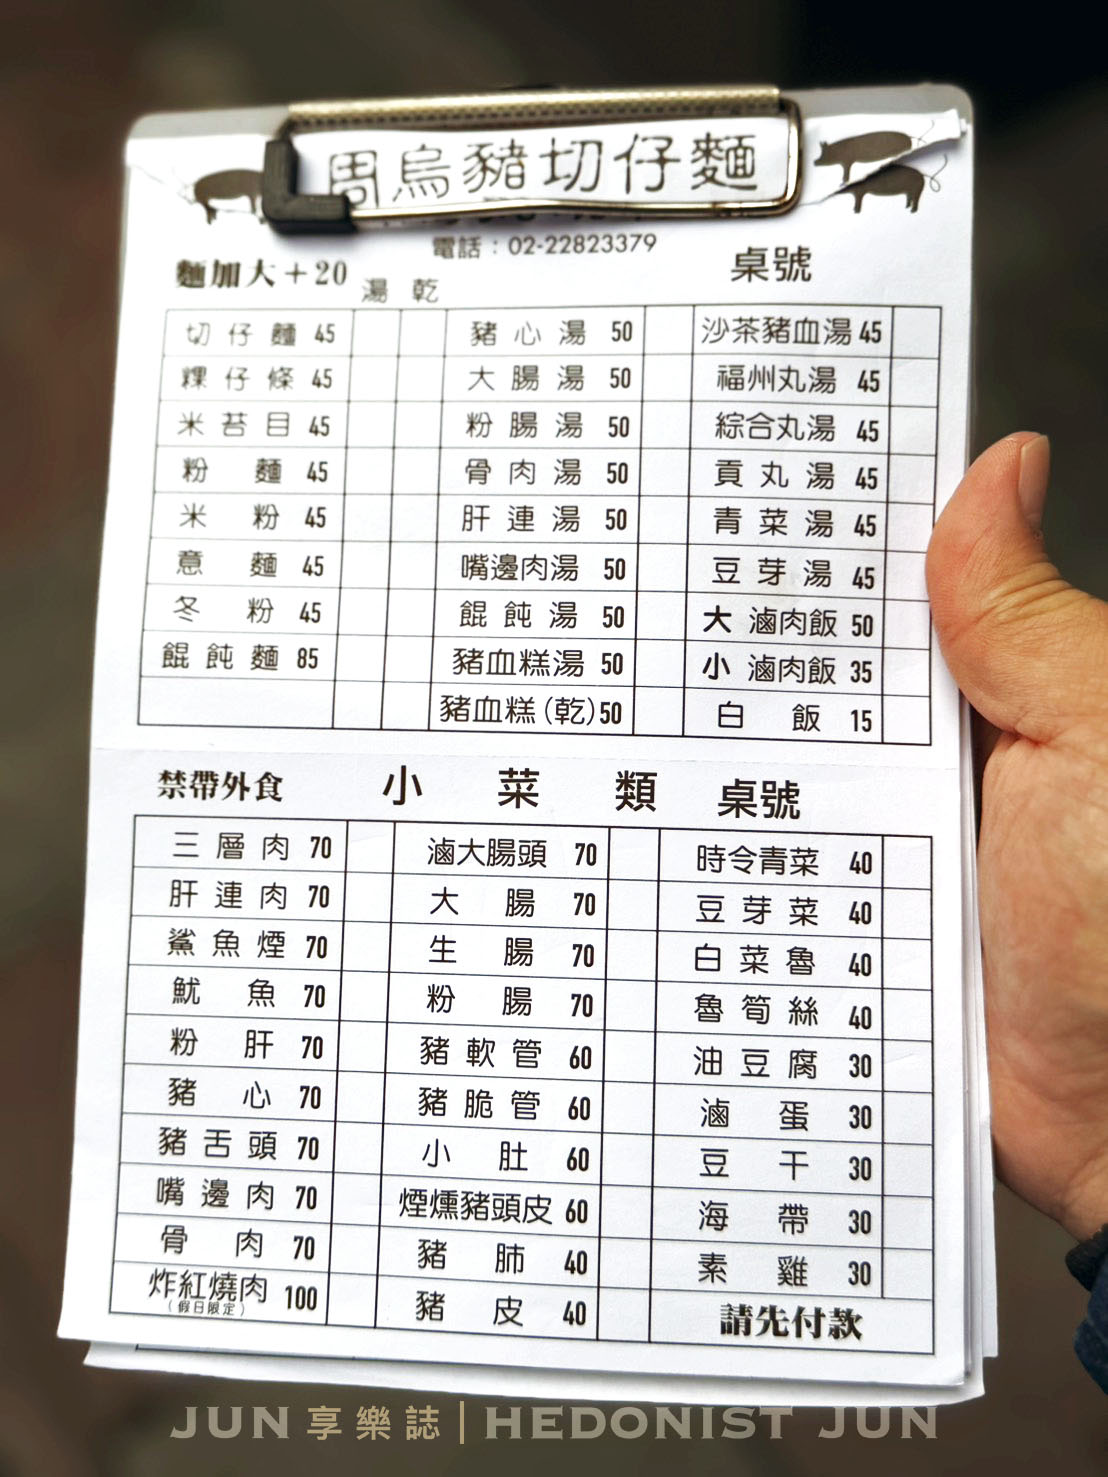 周烏豬切仔麵
電話：02-22823379
麵加大＋20 湯 乾 桌號
切仔麵 45 豬心湯 50 沙茶豬血湯 45
粿仔條 45 大腸湯 50 福州丸湯 45
米苔目 45 粉腸湯 50 綜合丸湯 45
粉麵 45 骨肉湯 50 貢丸湯 45
米粉 45 肝連湯 50 青菜湯 45
意麵 45 嘴邊肉湯 50 豆芽湯 45
冬粉 45 餛飩湯 50 大 滷肉飯 50
餛飩麵 85 豬血糕湯 50 小 滷肉飯 35
豬血糕(乾) 50 白飯 15
禁帶外食 小菜類 桌號
三層肉 70 滷大腸頭 70 時令青菜 40
肝連肉 70 大腸 70 豆芽菜 40
鯊魚煙 70 生腸 70 白菜魯 40
魷魚 70 粉腸 70 魯筍絲 40
粉肝 70 豬軟管 60 油豆腐 30
豬心 70 豬脆管 60 滷蛋 30
豬舌頭 70 小肚 60 豆干 30
嘴邊肉 70 煙燻豬頭皮 60 海帶 30
骨肉 70 豬肺 40 素雞 30
炸紅燒肉 100 豬皮 40 請先付款
(假日限定)
JUN 享樂誌 | HEDONIST JUN